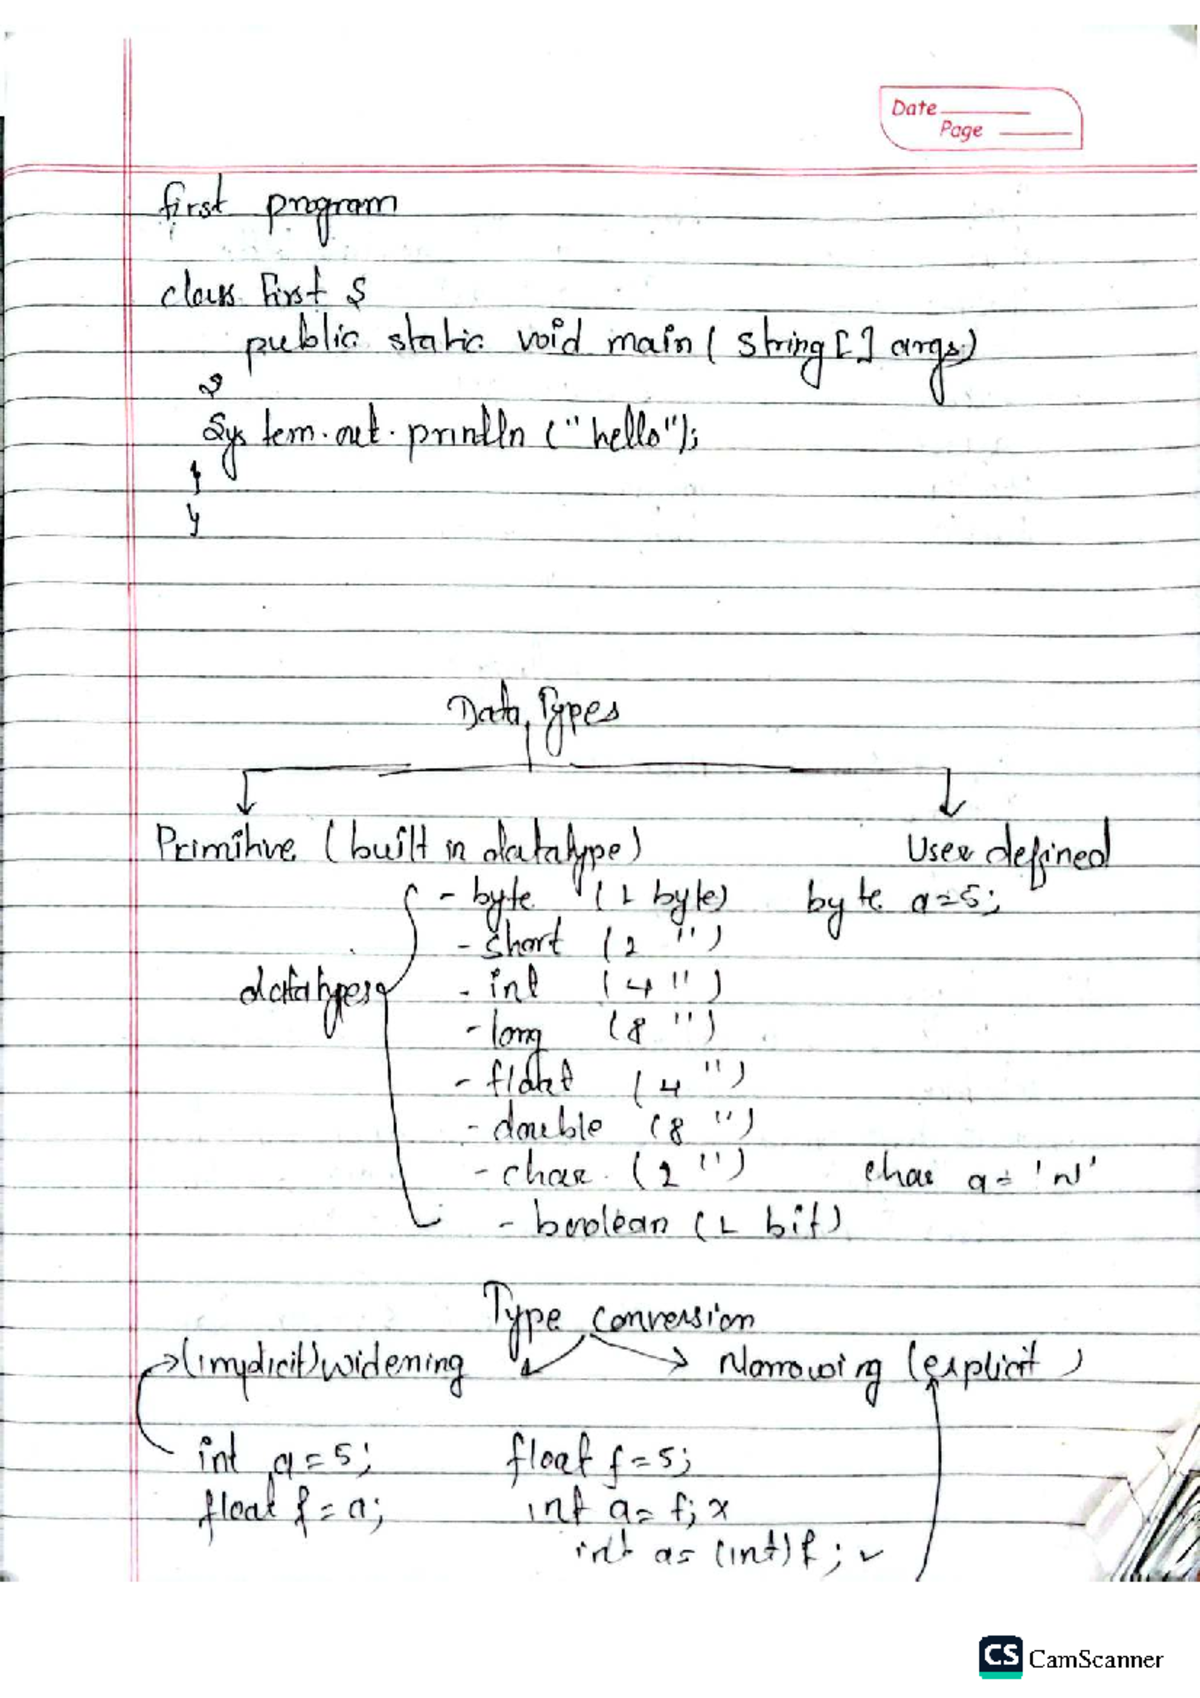 Date
Page
first program
class First {
public static void main ( string [ ] args )
{
System.out.println ("hello");
}
}
Data Types
Primitive (built in datatype) User defined
- byte (1 byte) byte a=5;
- short (2 ")
datatypes - int (4 ")
- long (8 ")
- float (4 ")
- double (8 ")
- char (2 ") char a = 'n'
- boolean (1 bit)
Type conversion
(implicit) widening Narrowing (explicit)
int a=5; float f=5;
float f=a; int a= f; x
int a= (int) f ; ✓
CS CamScanner